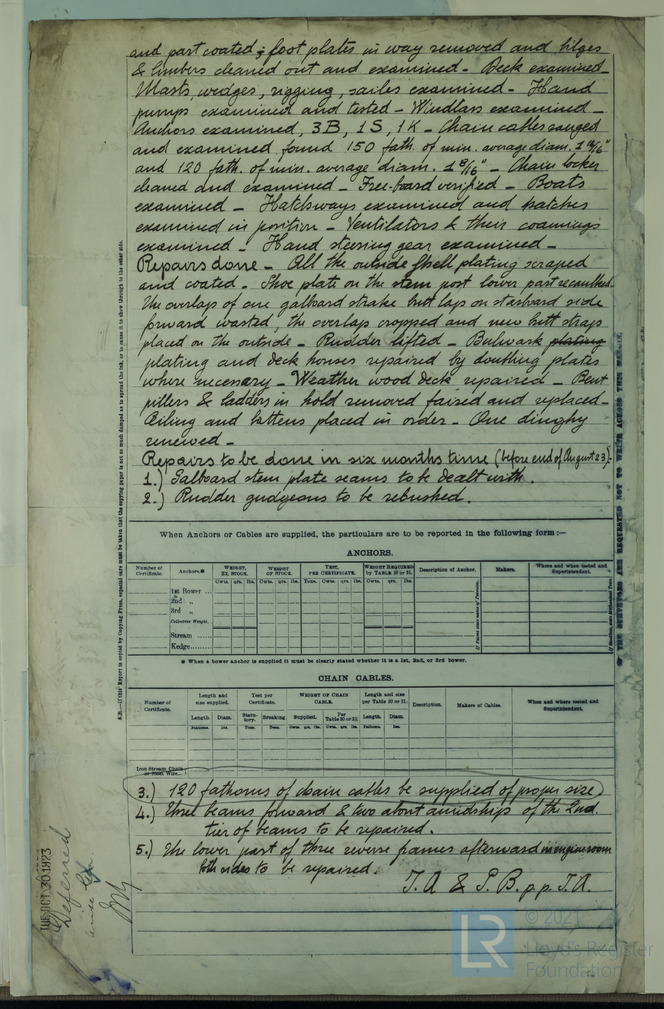 and part coated; foot plates in way removed and bilges
& limbers cleaned out and examined - Deck examined -
Masts, wedges, rigging, sailes examined - Hand
pumps examined and tested - Windlass examined -
Anchors examined, 3B, 1S, 1K - Chain cables ranged
and examined, found 150 fath. of min. average diam.
and 120 fath. of min. average diam. 1 8/16" - Chain locker
cleaned and examined - Free-board verified - Boats
examined - Hatchways examined and hatches
examined in position - Ventilators & their coamings
examined - Hand steering gear examined -
Repairs done - All the outside shell plating scraped
and coated - Shoe plate on the stem post lower part recaulked.
The overlaps of one galboard strake butt laps on starboard side
forward wasted, the overlaps cropped and new butt straps
placed on the outside - Rudder lifted - Bulwark plating
plating and deck houses repaired by doubling plates
where necessary - Weather wood deck repaired - Bent
pillers & ladders in hold removed faired and replaced -
Ceiling and battens placed in order - One dinghy
renewed -
Repairs to be done in six months time (before end of August 23):-
1.) Galboard stem plate seams to be dealt with.
2.) Rudder gudgeons to be rebushed.
When Anchors or Cables are supplied, the particulars are to be reported in the following form :—
ANCHORS.
Number of Certificate. Anchors.* WEIGHT, EX. STOCK. WEIGHT OF STOCK. TEST, PER CERTIFICATE. WEIGHT REQUIRED by TABLE 30 or 31. Description of Anchor. Makers. When and where tested and Superintendent.
Cwts. qrs. lbs. Cwts. qrs. lbs. Tons. Cwts. qrs. lbs. Cwts. qrs. lbs.
1st Bower ...
2nd "
3rd "
Collective Weight.
Stream ......
Kedge ......
* When a bower anchor is supplied it must be clearly stated whether it is a 1st, 2nd, or 3rd bower.
CHAIN CABLES.
Number of Certificate. Length and size supplied. Test per Certificate. WEIGHT OF CHAIN CABLE. Length and size per Table 30 or 31. Description. Makers of Cables. When and where tested and Superintendent.
Length. Diam. Statutory. Breaking. Supplied. Per Table 30 or 31. Length. Diam.
Iron Stream Chain or Steel Wire...
3.) 120 fathoms of chain cables be supplied of proper size
4.) Three beams forward & two about amidships of the 2nd.
tier of beams to be repaired.
5.) The lower part of three reverse frames afterward in engine room
both sides to be repaired.
T.A & P.B. p.p. T.A.
TUE. OCT. 30. 1923
Deferred
LR
© 2021
Lloyd's Register
Foundation